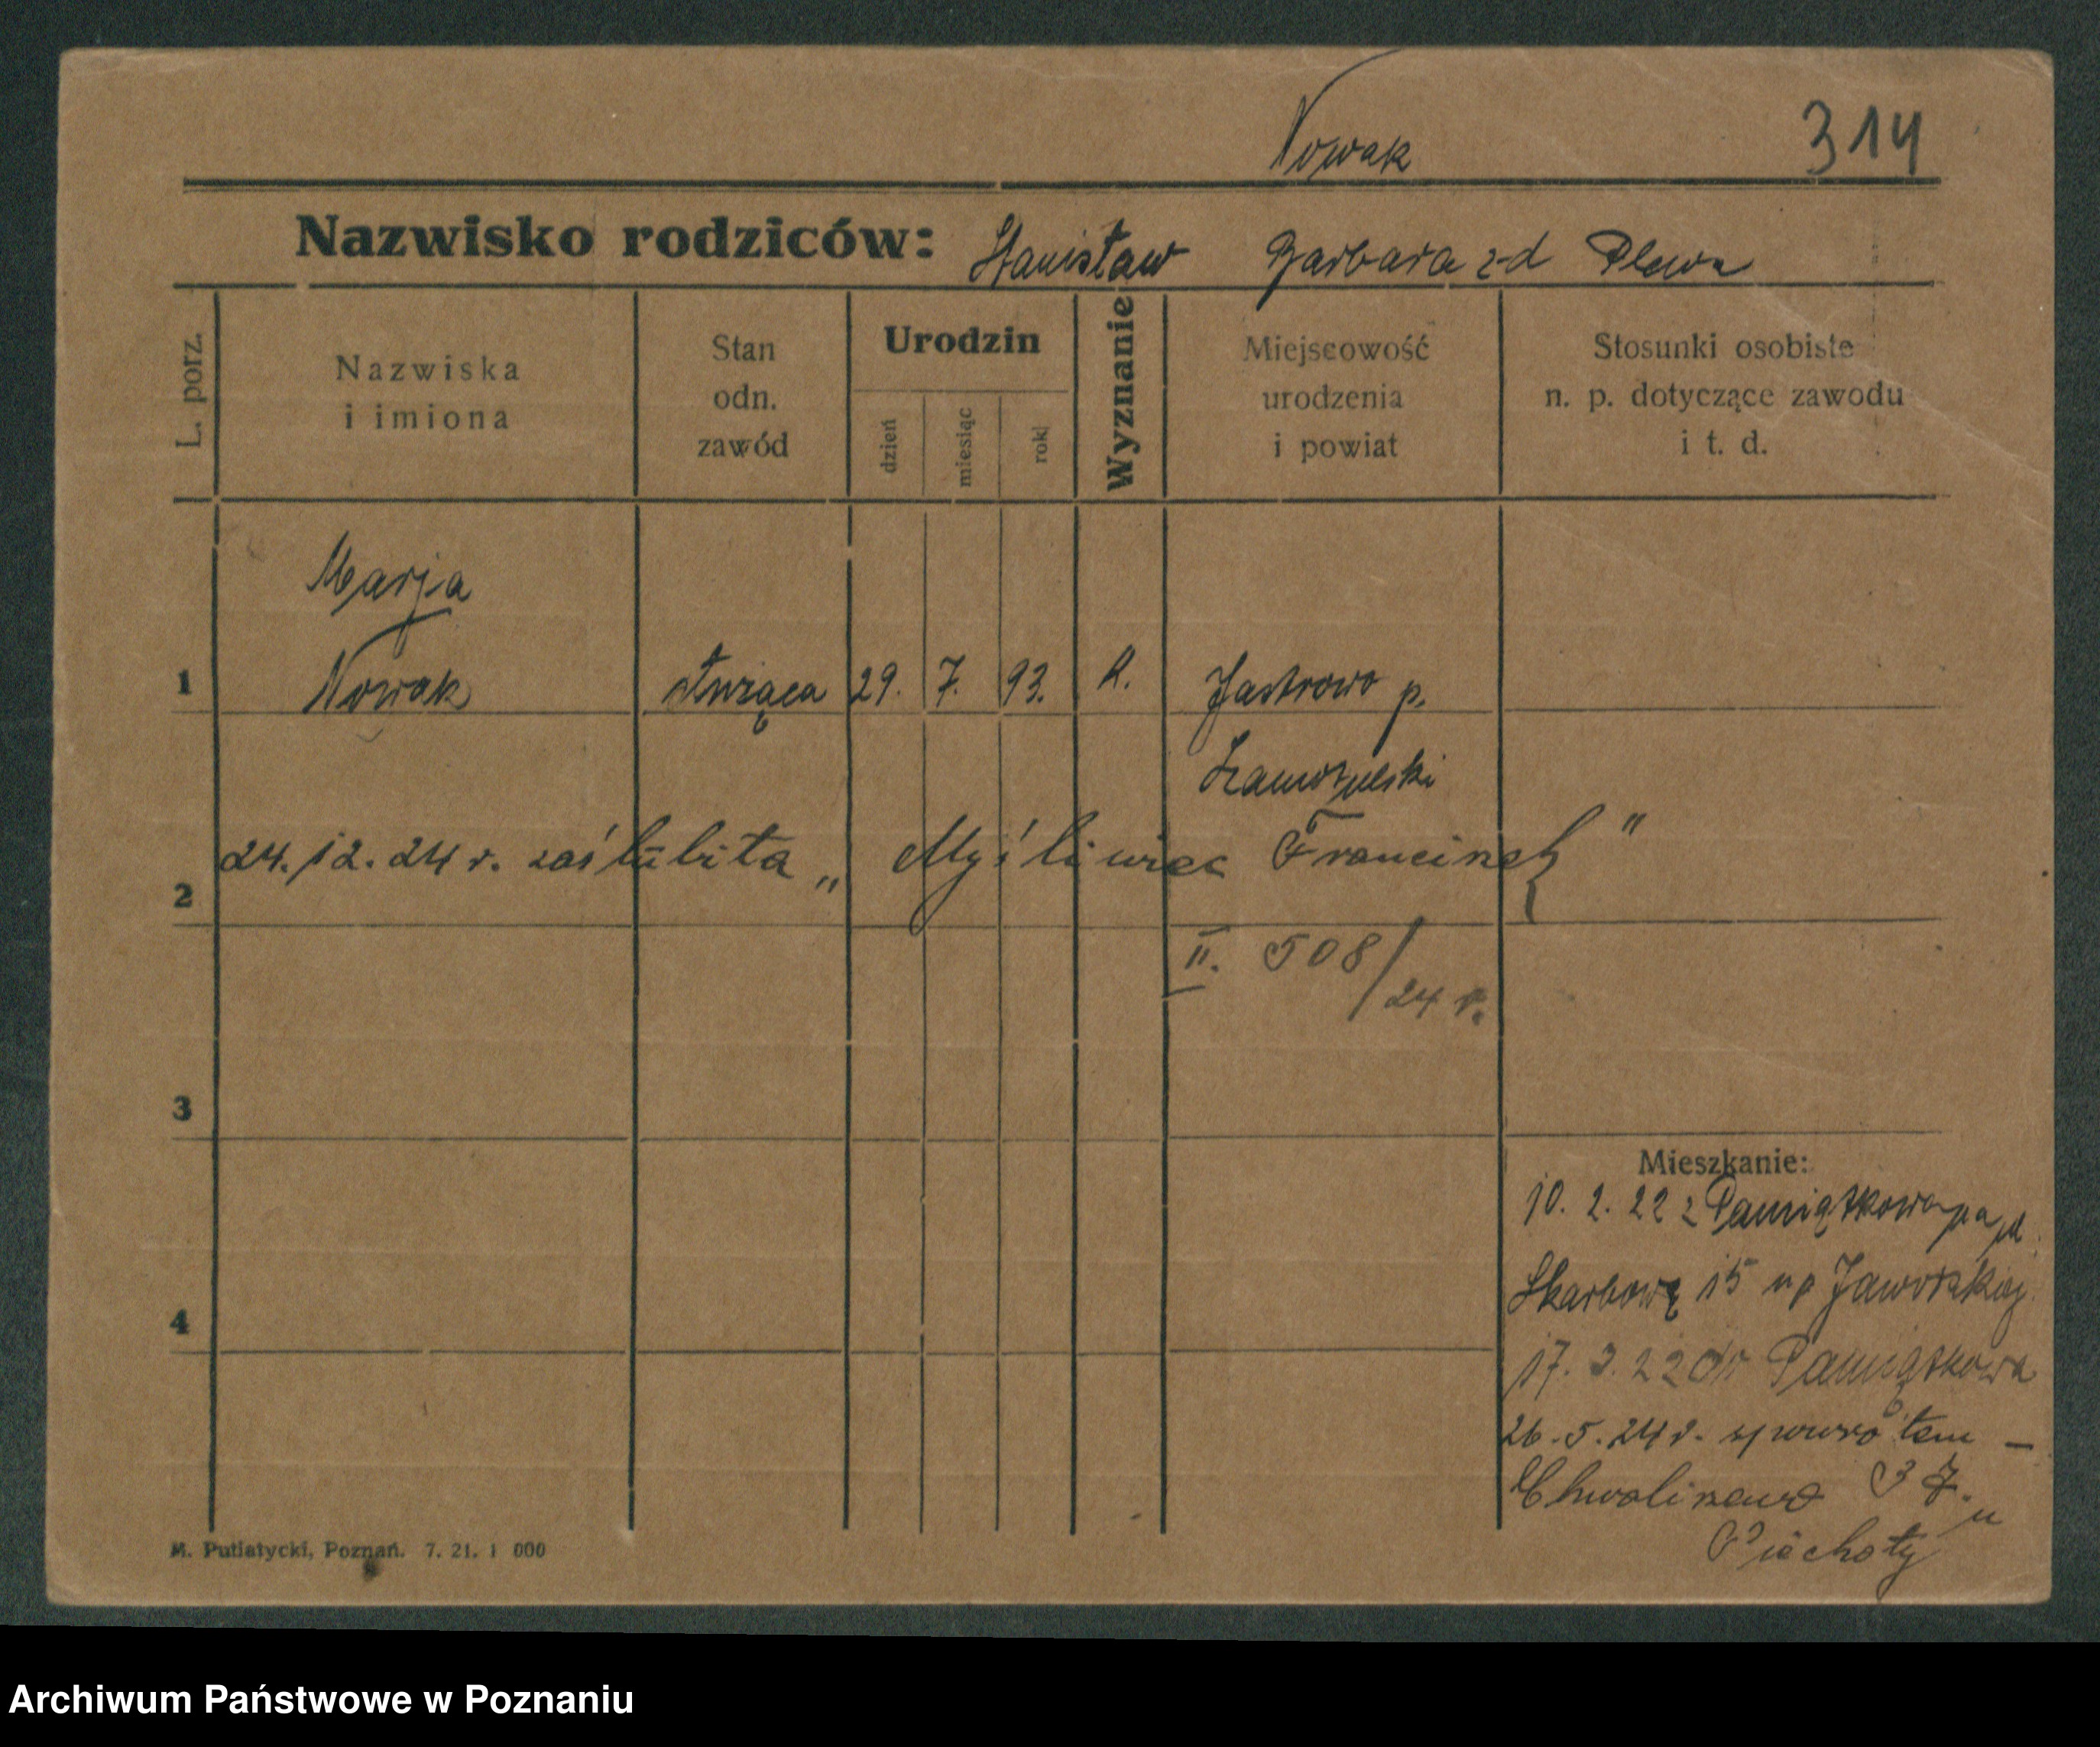 Nowak 314
Nazwisko rodziców: Stanisław Barbara z d Plewa
L. porz.
Nazwiska
i imiona
Stan
odn.
zawód
Urodzin
dzień
miesiąc
rok
Wyznanie
Miejscowość
urodzenia
i powiat
Stosunki osobiste
n. p. dotyczące zawodu
i t. d.
Marja
1 Nowak służąca 29. 7. 93. k. Jastrowo p.
Szamotulski
2 24. 12. 24 r. zaślubiła „Myśliwiec Franciszek"
II. 508/24 r.
3
Mieszkanie:
10. 2. 22 z Pamiątkowa na
Skarbową 15 Jaworskiej
4
17. 3. 22 do Pamiątkowa
26. 5. 24 r. spowrotem —
Chwaliszewo 37. u
Piechoty
M. Putiatycki, Poznań. 7. 21. 1 000
Archiwum Państwowe w Poznaniu